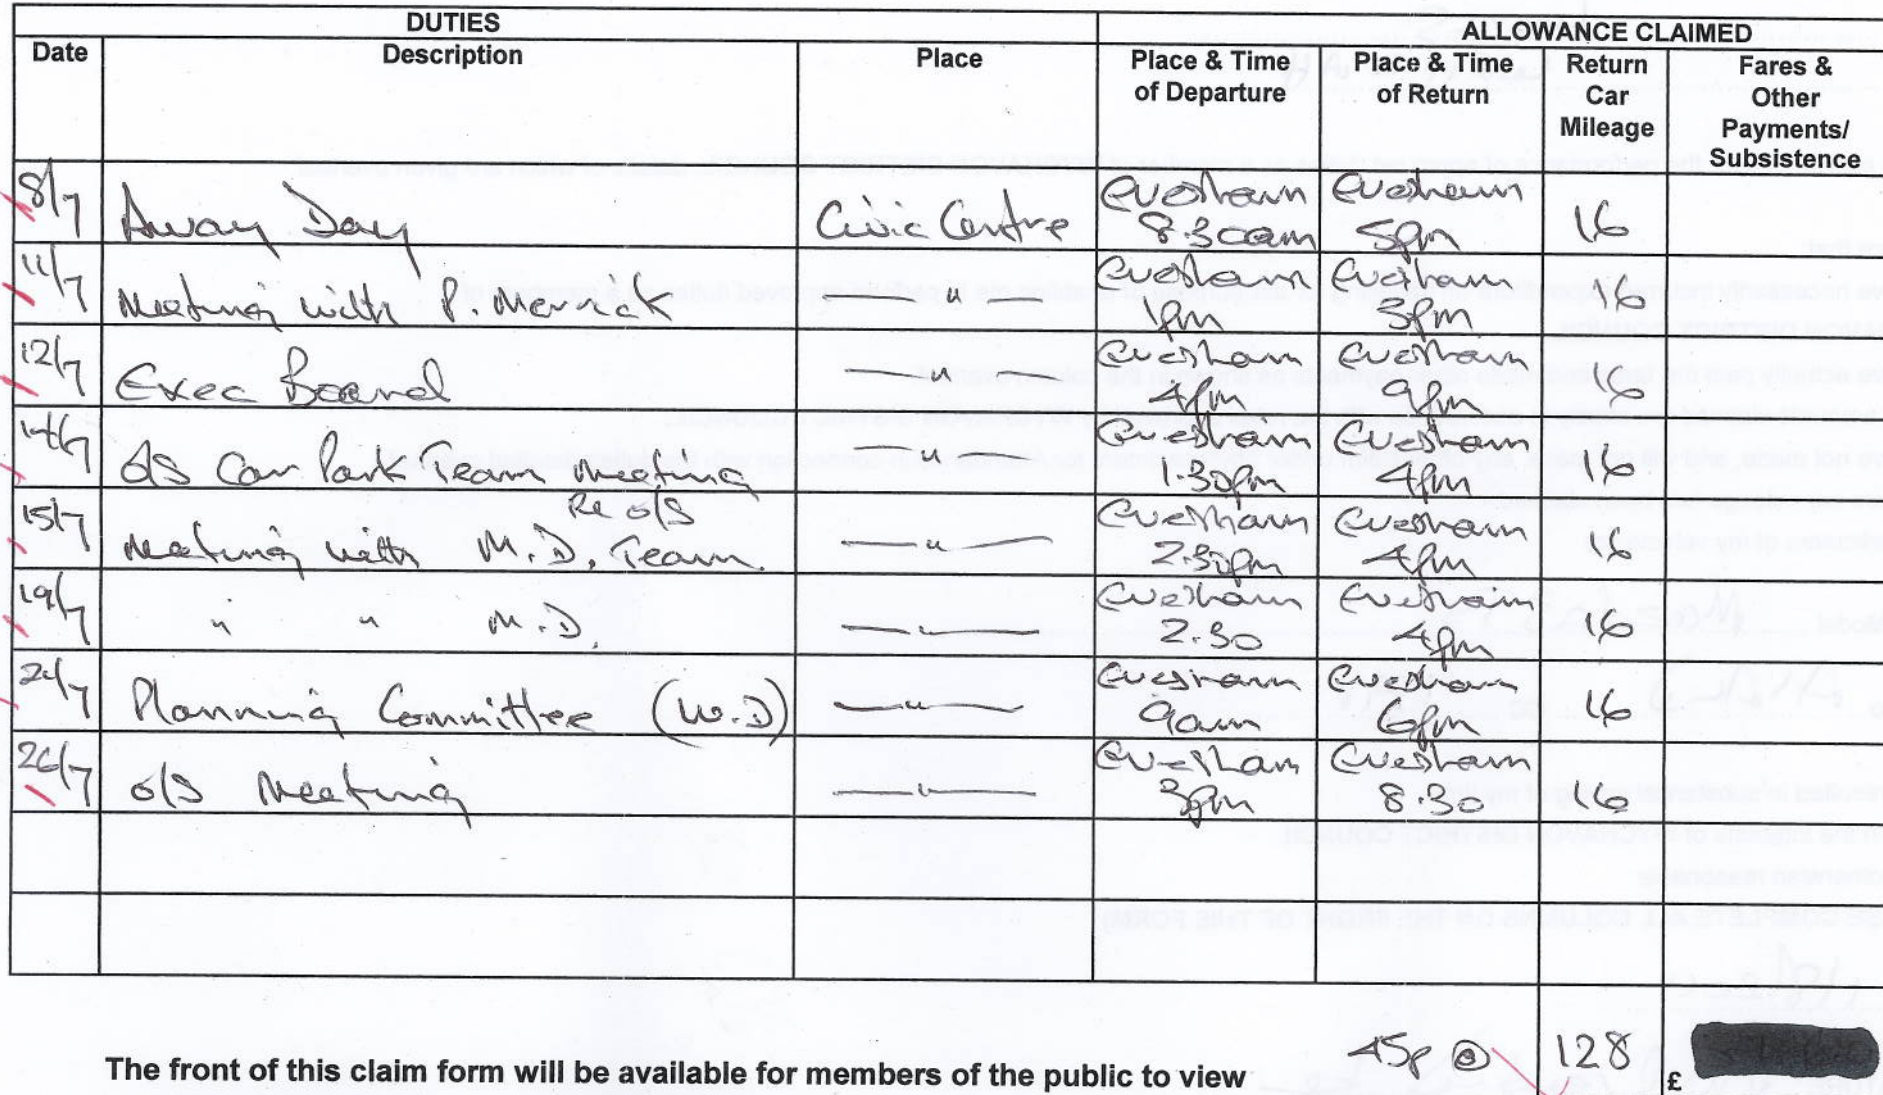 DUTIES ALLOWANCE CLAIMED
Date Description Place Place & Time of Departure Place & Time of Return Return Car Mileage Fares & Other Payments/ Subsistence
8/7 Away Day Civic Centre Evesham 8.30am Evesham 5pm 16
11/7 Meeting with P. Merrick " Evesham 1pm Evesham 3pm 16
12/7 Exec Board " Evesham 4pm Evesham 9pm 16
14/7 O/S Car Park Team Meeting " Evesham 1.30pm Evesham 4pm 16
15/7 Meeting with M.D. Team Re O/S " Evesham 2.30pm Evesham 4pm 16
19/7 " " M.D. " Evesham 2.30 Evesham 4pm 16
Planning Committee (W.D) " Evesham 9am Evesham 6pm 16
26/7 O/S Meeting " Evesham 3pm Evesham 8.30 16
45p @ 128 £
The front of this claim form will be available for members of the public to view